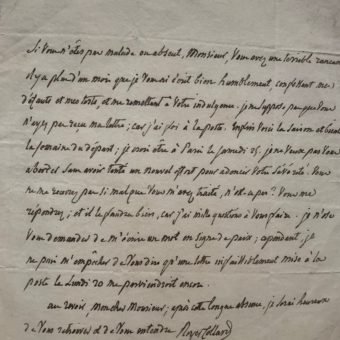 Si vous n'êtes pas malade ou absent, Monsieur, vous avez une terrible rancune
il y a plus d'un mois que je vous ai écrit bien humblement, confessant mes
défauts et mes torts, et me remettant à votre indulgence. je ne suppose pas que vous
n'ayez pas reçu ma lettre; car j'ai foi à la poste. Enfin voici la saison et
la semaine du départ; je serai être à Paris le samedi 25. je ne veux pas vous
aborder sans avoir tenté un nouvel effort pour adoucir votre sévérité. Vous
ne me recevrez pas si mal que vous m'avez traité, n'est-ce pas? Vous me
répondrez, et il le faudra bien, car j'ai mille questions à vous faire. je n'ose
vous demander de m'écrire un mot en signe de paix; cependant, je
ne puis m'empêcher de vous dire qu'une lettre infailliblement mise à la
poste le Lundi 20 me parviendroit encore.
au revoir, mon cher Monsieur; après cette longue absence, je serai heureux
de vous retrouver et de vous entendre Royer Collard